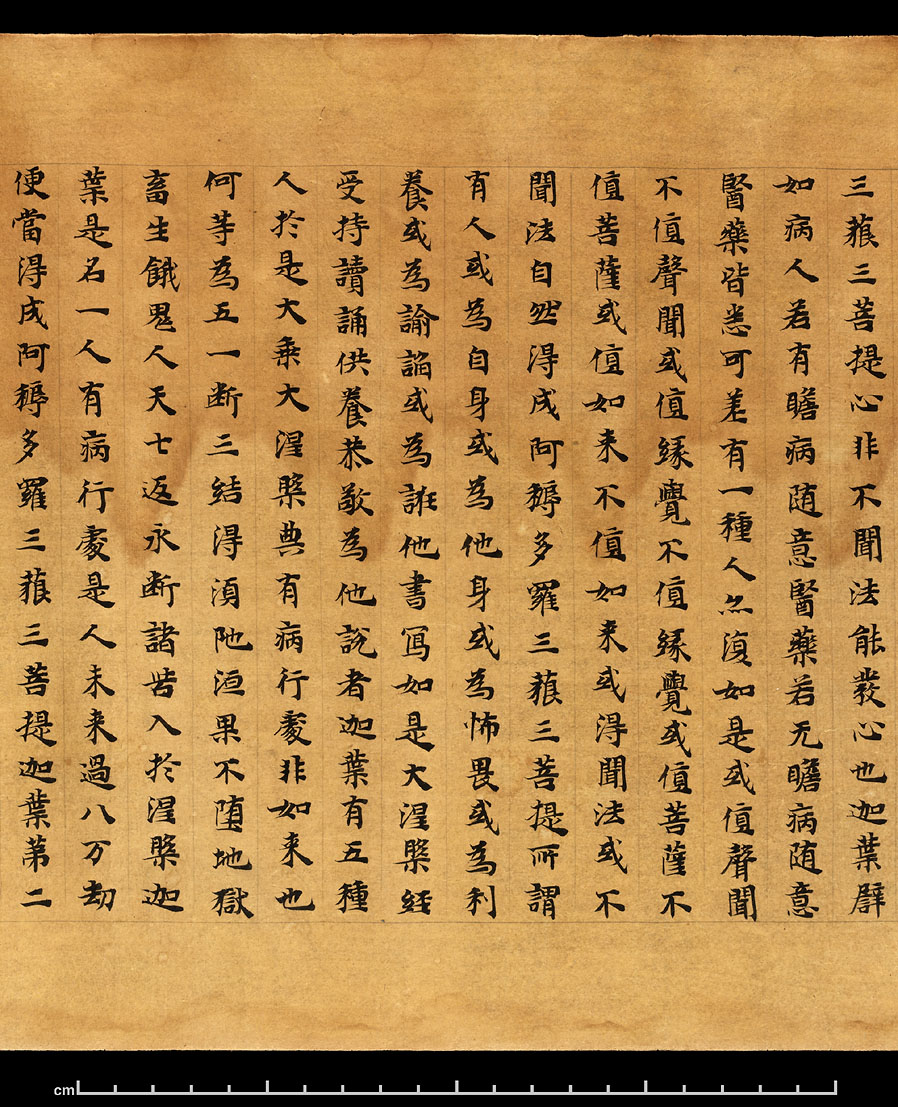 三藐三菩提心非不聞法能發心也迦葉辟
如病人若有瞻病随意醫藥若无瞻病随意
醫藥皆悉可差有一種人亦復如是或值聲聞
不值聲聞或值緣覺不值緣覺或值菩薩不
值菩薩或值如来不值如来或得聞法或不
聞法自然得成阿耨多羅三藐三菩提所謂
有人或為自身或為他身或為怖畏或為利
養或為諭諂或為誑他書寫如是大涅槃經
受持讀誦供養恭敬為他說者迦葉有五種
人於是大乘大涅槃典有病行處非如来也
何等為五一斷三結得湏陁洹果不墮地獄
畜生餓鬼人天七返永斷諸苦入於涅槃迦
葉是名一人有病行處是人未来過八万劫
便當得成阿耨多羅三藐三菩提迦葉第二
cm